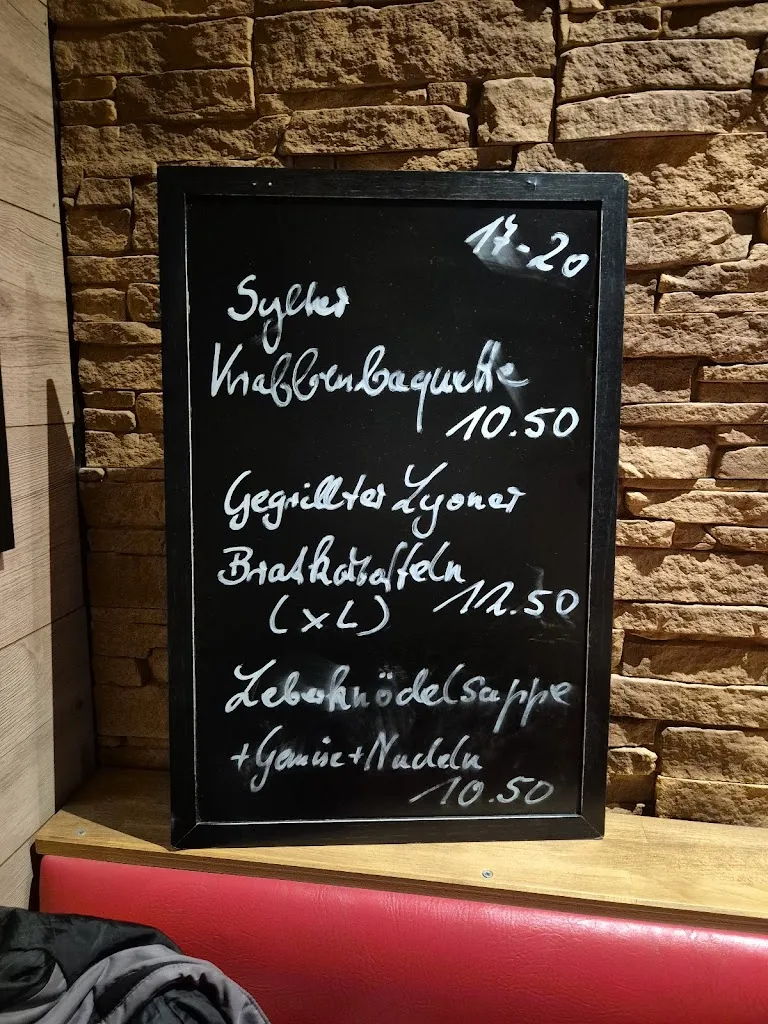 17-20
Sylter
Krabbenbaguette
10.50
Gegrillter Lyoner
Bratkartoffeln
(XL) 12.50
Leberknödelsuppe
+Gemüse+Nudeln
10.50